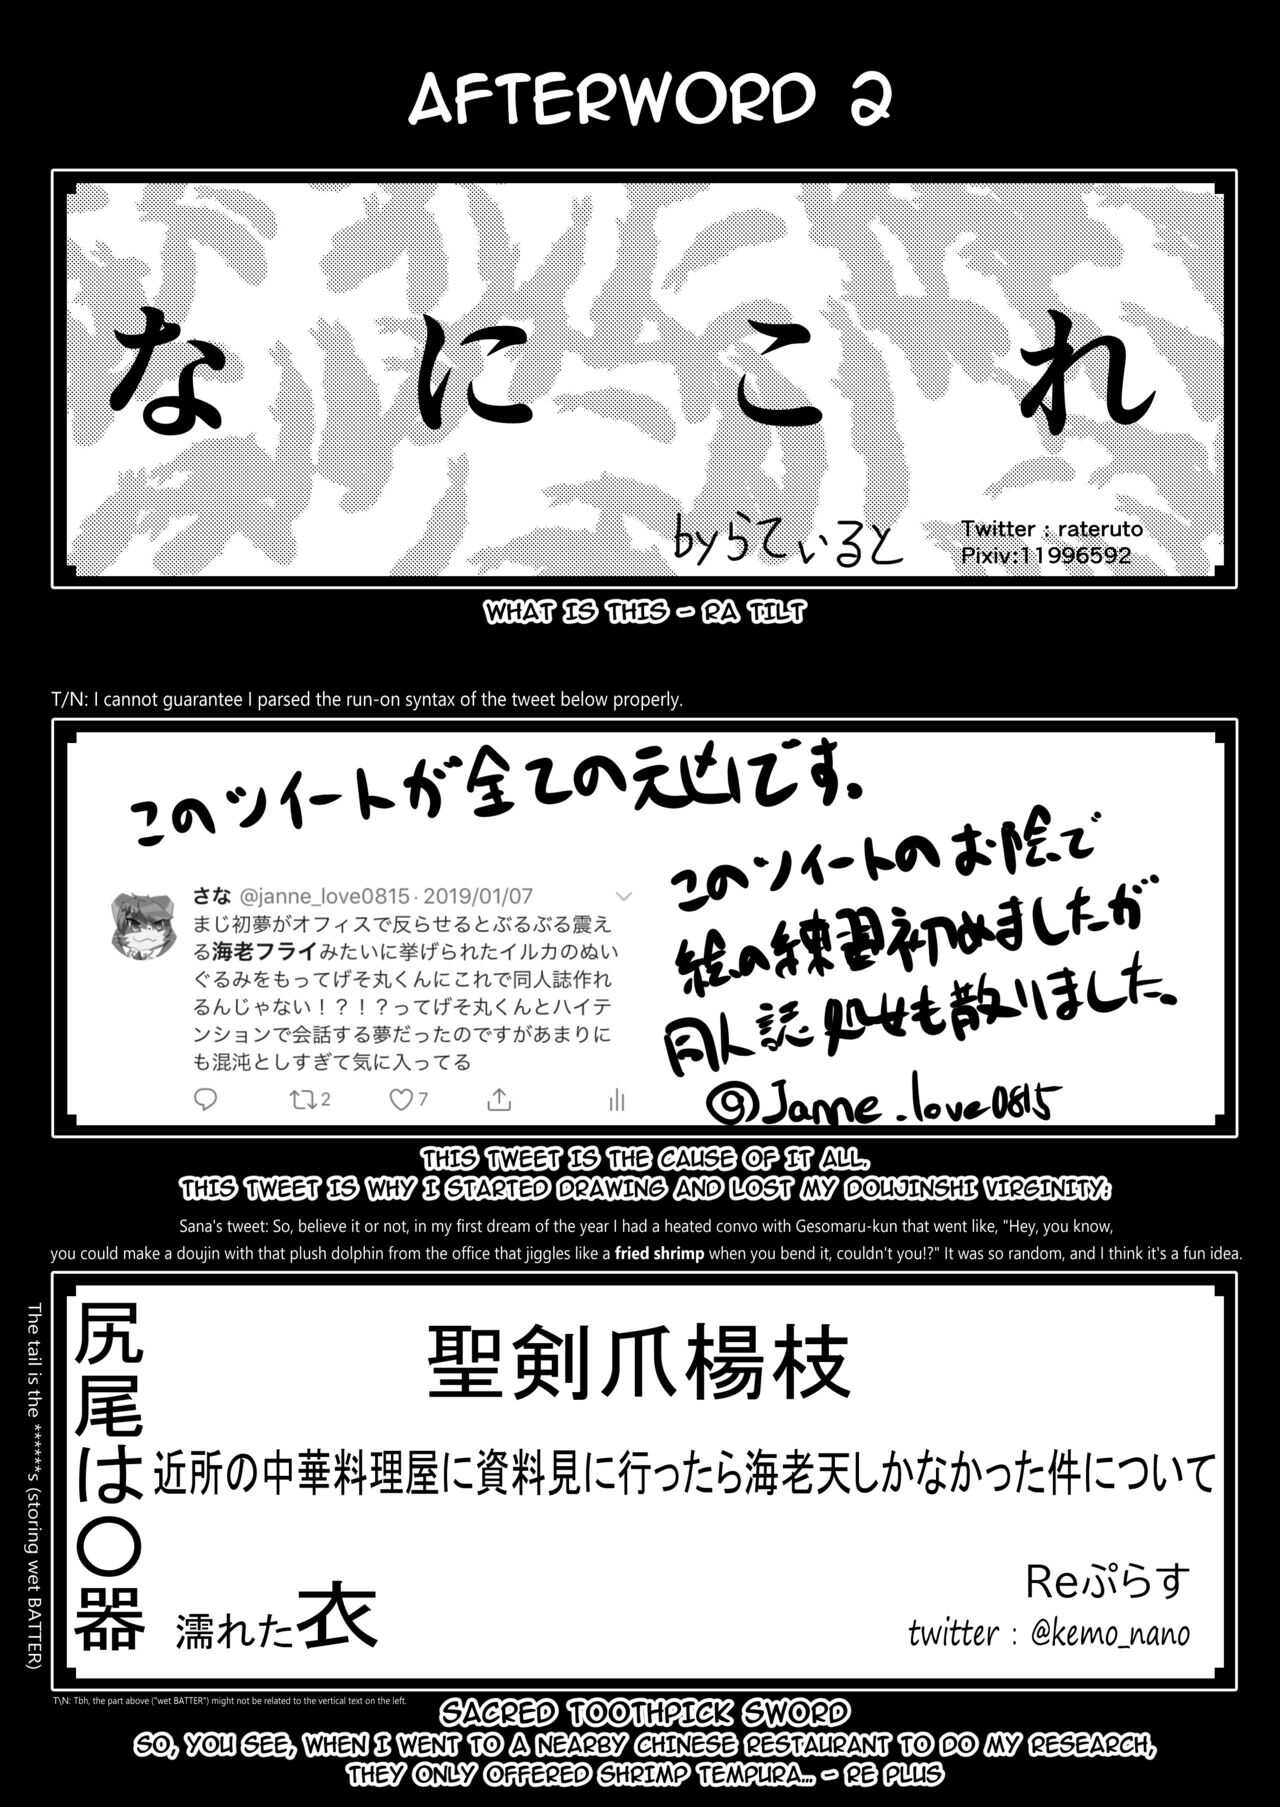 AFTERWORD 2
なにこれ
byらてぃると
Twitter : rateruto
Pixiv:11996592
WHAT IS THIS - RA TILT
T/N: I cannot guarantee I parsed the run-on syntax of the tweet below properly.
このツイートが全ての元凶です。
さな @janne_love0815 · 2019/01/07
まじ初夢がオフィスで反らせるとぶるぶる震え
る海老フライみたいに挙げられたイルカのぬい
ぐるみをもってげそ丸くんにこれで同人誌作れ
るんじゃない！？！？ってげそ丸くんとハイテ
ンションで会話する夢だったのですがあまりに
も混沌としすぎて気に入ってる
2
7
このツイートのお陰で
絵の練習初めましたが
同人誌処女も散りました。
@Janne.love0815
THIS TWEET IS THE CAUSE OF IT ALL.
THIS TWEET IS WHY I STARTED DRAWING AND LOST MY DOUJINSHI VIRGINITY:
Sana's tweet: So, believe it or not, in my first dream of the year I had a heated convo with Gesomaru-kun that went like, "Hey, you know,
you could make a doujin with that plush dolphin from the office that jiggles like a fried shrimp when you bend it, couldn't you!?" It was so random, and I think it's a fun idea.
The tail is the ******s (storing wet BATTER)
尻尾は〇器
聖剣爪楊枝
近所の中華料理屋に資料見に行ったら海老天しかなかった件について
濡れた衣
Reぷらす
twitter : @kemo_nano
T\N: Tbh, the part above ("wet BATTER") might not be related to the vertical text on the left.
SACRED TOOTHPICK SWORD
SO, YOU SEE, WHEN I WENT TO A NEARBY CHINESE RESTAURANT TO DO MY RESEARCH,
THEY ONLY OFFERED SHRIMP TEMPURA... - RE PLUS